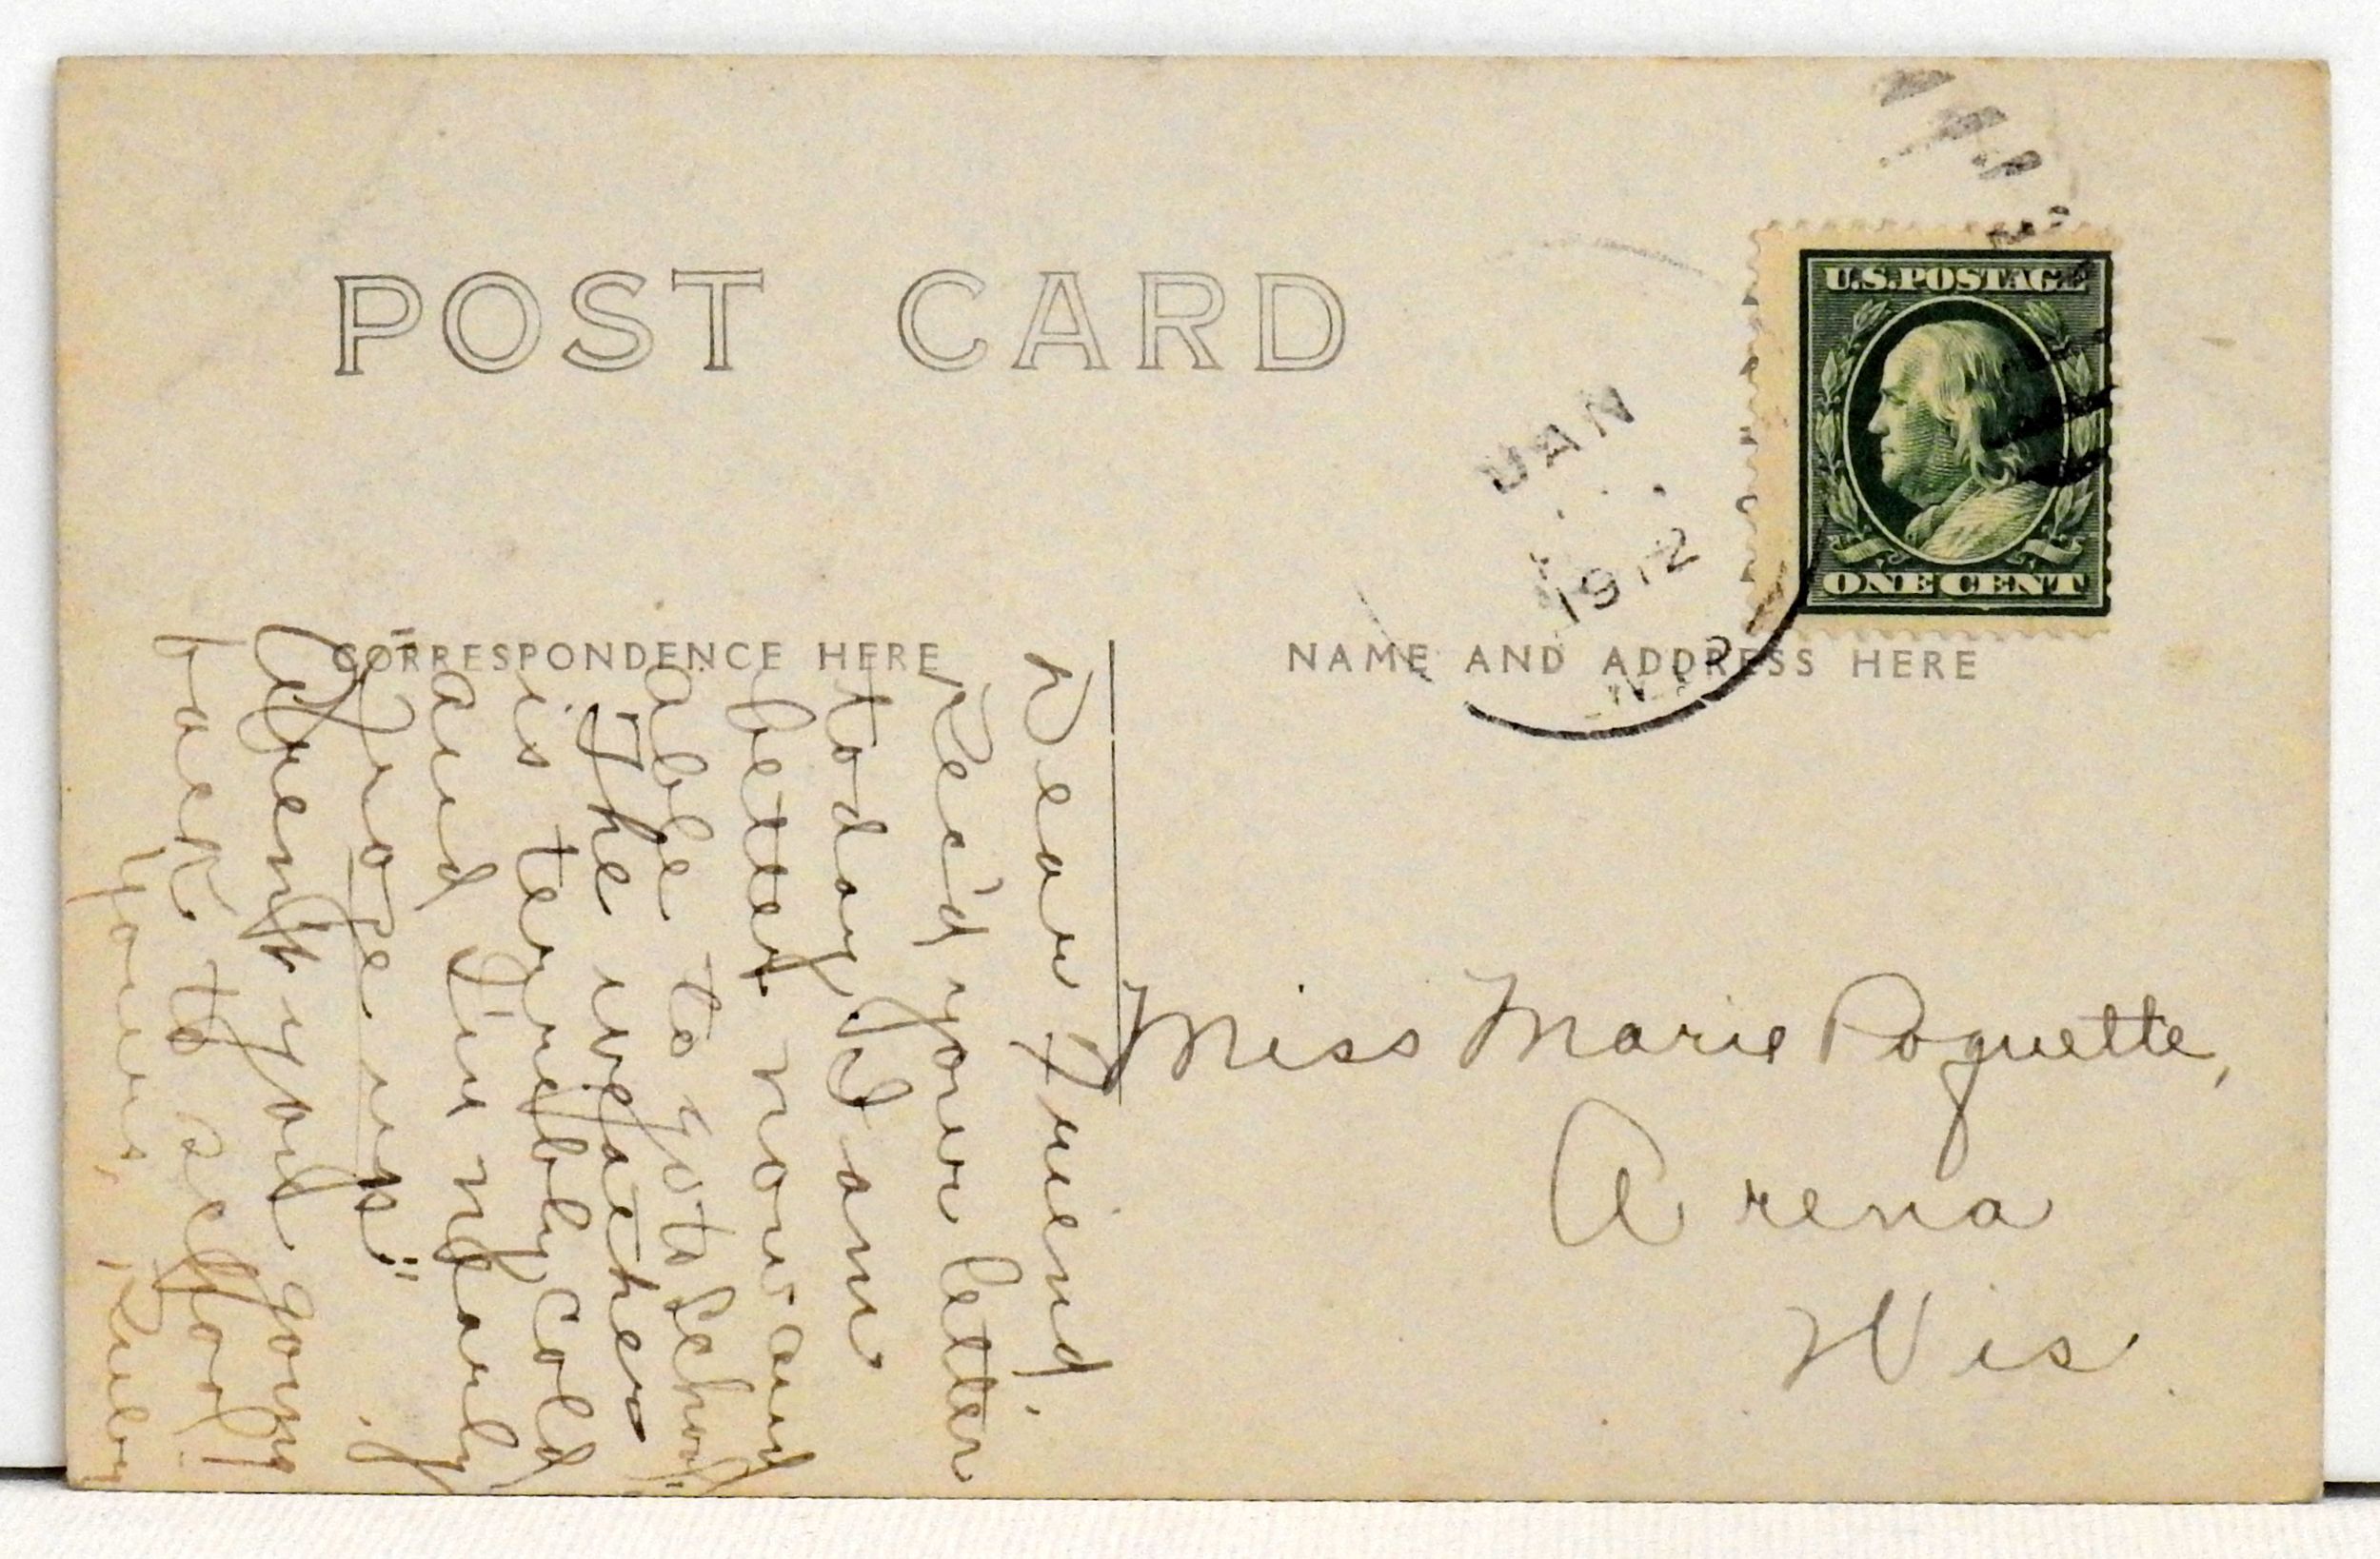 POST CARD
U.S. POSTAGE
ONE CENT
JAN
1912
CORRESPONDENCE HERE
NAME AND ADDRESS HERE
Dear Friend,
Rec'd your letter
today. I am
better now and
able to go to School.
The weather
is terribly cold
and I'm nearly
"froze up".
Aren't you going
back to school?
Yours, Ruby
Miss Marie Poquette,
Arena
Wis.